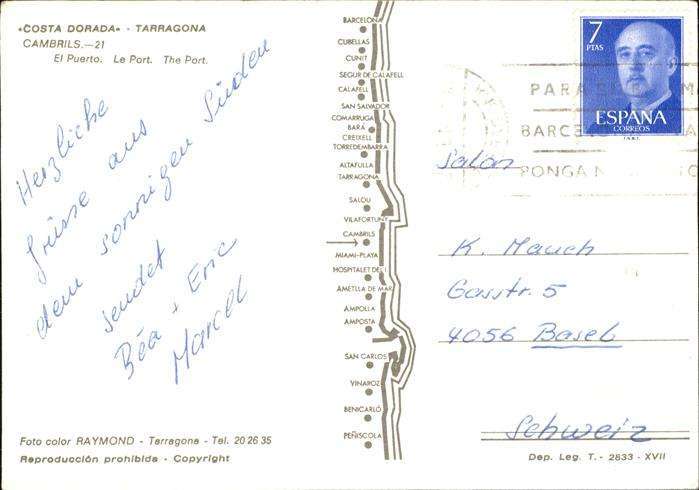 «COSTA DORADA» - TARRAGONA
CAMBRILS.—21
El Puerto. Le Port. The Port.
Herzliche
Grüsse aus
dem sonnigen Süden
sendet
Béa + Eric
Marcel
Foto color RAYMOND - Tarragona - Tel. 20 26 35
Reproducción prohibida - Copyright
BARCELONA
CUBELLAS
CUNIT
SEGUR DE CALAFELL
CALAFELL
SAN SALVADOR
COMARRUGA
BARÁ
CREIXELL
TORREDEMBARRA
ALTAFULLA
TARRAGONA
SALOU
VILAFORTUNY
CAMBRILS
MIAMI-PLAYA
HOSPITALET DEL I.
AMETLLA DE MAR
AMPOLLA
AMPOSTA
SAN CARLOS
VINAROZ
BENICARLÓ
PEÑISCOLA
7
PTAS
ESPAÑA
CORREOS
PARA
BARCE
PONGA
Salon
K. Mauch
Gasstr. 5
4056 Basel
Schweiz
Dep. Leg. T. - 2833 - XVII